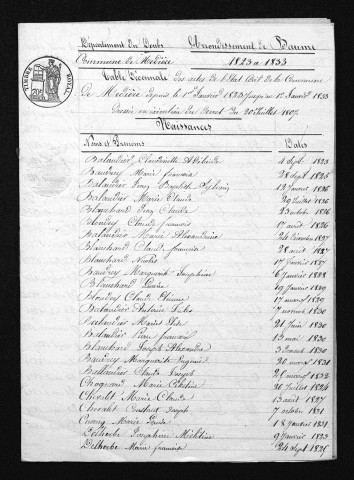 Département du Doubs Arrondissement de Baume
Commune de Médière 1823 a 1833
Table Décennale des actes de l'Etat Civil de la Commune
De Médière depuis le 1er Janvier 1823 jusqu'au 1er Janvier 1833
Dressée en exécution du Décret du 20 Juillet 1807.
Naissances
Noms et Prénoms Dates
Balandier Claudinette Adélaide 4 sept 1823
Baudrey Marie françoise 28 sept 1825
Balandier Jean Baptiste 12 Janvier 1826
Balandier Marie Claude 29 Juillet 1826
Blanchard Jean Claude 23 octobre 1826
Blondey Claude francois 17 avril 1826
Balandier Marie Alexandrine 24 1827
Blanchard Claude francois 28 août 1827
Blanchard Nicolas 17 février 1827
Baudrey Marguerite Josephine 6 Janvier 1828
Blanchard 19 Janvier 1829
Blondey Claude Etienne 17 mars 1829
Balandier Antoine 7 novembre 1830
Balandier 21 Juin 1830
Balandier Pierre francois 13 mai 1830
Blanchard Joseph Alexandre 3 1830
Baudrey Marguerite Eugenie 20 1831
Balandier Claude Joseph 28 1832
Chograud Marie 20 Juillet 1824
Chevalet Marie Claude 13 août 1827
Chevalet Joseph 7 octobre 1831
Marie 18 Janvier 1831
Delherbe Josephine 9 Janvier 1823
Delherbe Marie francoise 24 sept 1825